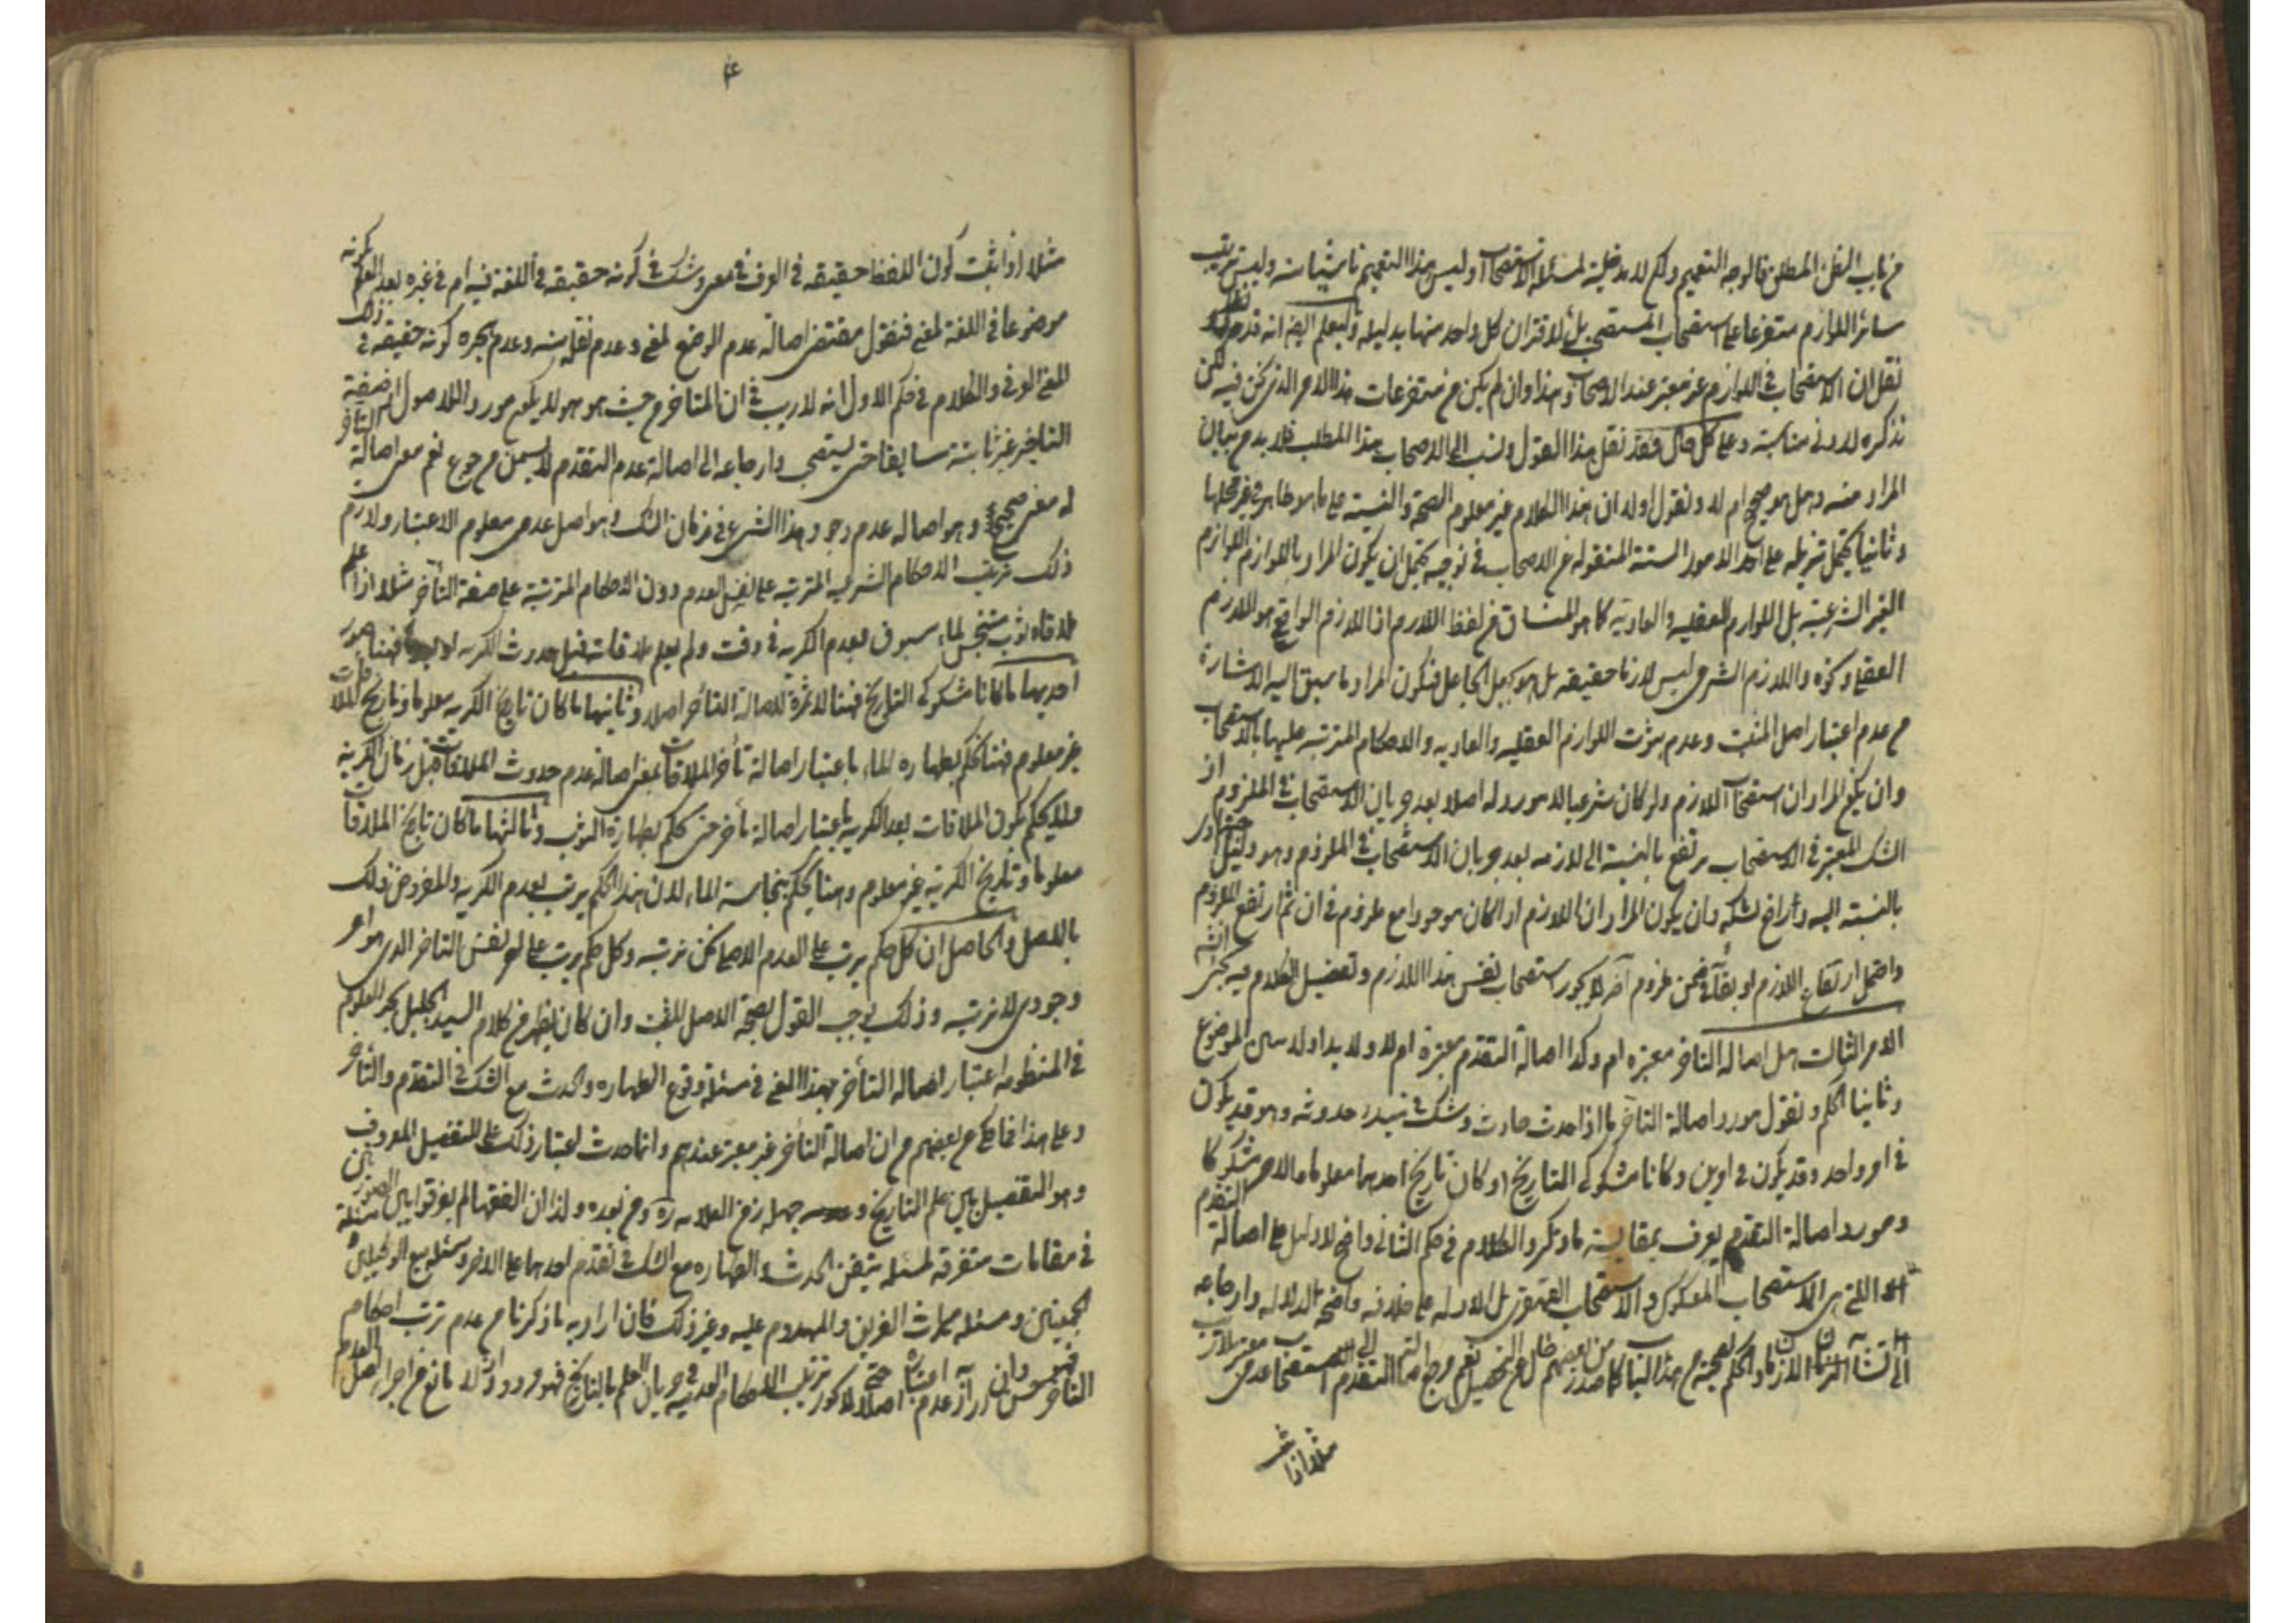 من باب الظن المطلق فالوجه التعميم ولكن لا مدخلية لمسئلة الاستصحاب وليس هذا التعميم ناشيا منه وليس ترتيب
سائر اللوازم متفرعا على استصحاب المستصحب بل لاقتران كل واحد منها بدليله وليعلم ايضا انه قد
نقل ان الاستصحاب في اللوازم غير معتبر عند الاصحاب وهذا وان لم يكن من متفرعات هذا الامر الذي نحن فيه لكن
نذكره لادنى مناسبة وعلى كل حال فقد نقل هذا القول ونسب الى الاصحاب هذا المطلب فلا بد من بيان
المراد منه وهل هو صحيح ام لا ونقول اولا ان هذا الكلام غير معلوم الصحة والنسبة على ما هو ظاهر في غير محلها
وثانيا يحتمل تنزيله على احد الامور الستة المنقوله عن الاصحاب في توجيه يحتمل ان يكون المراد باللوازم اللوازم
الغير الشرعية بل اللوازم العقليه والعادية كما هو المنساق من لفظ اللازم اذ اللازم الواقعي هو اللازم
العقلي وكونه واللازم الشرعي ليس لازما حقيقه بل هو بجعل الجاعل فيكون المراد ما سبق اليه الاشارة
من عدم اعتبار اصل المثبت وعدم ثبوت اللوازم العقليه والعاديه والاحكام المترتبه عليها بالاستصحاب
وان يكون المراد ان استصحاب اللازم ولو كان شرعيا لا مورد له اصلا بعد جريان الاستصحاب في الملزوم اذ
الشك المعتبر في الاستصحاب مرتفع بالنسبة الى لازمه بعد جريان الاستصحاب في الملزوم وهو دليل
بالنسبة اليه ورافع لشكه وان يكون المراد ان اللازم اذا كان موجودا مع ملزوم في ان ثم ارتفع الملزوم
واحتمل ارتفاع اللازم او بقائه في ضمن ملزوم آخر لا يجوز استصحاب نفس هذا اللازم وتفصيل الكلام فيه يجئ انشه
الامر الثالث هل اصالة التاخر معتبره ام وكذا اصالة التقدم معتبره ام لا ولا بد اولا من الموضوع
وثانيا الحكم ونقول مورد اصالة التاخر ما اذا حدث حادث وشك في مبدء حدوثه وهو قد يكون
في امر واحد وقد يكون في امرين وكانا مشكوكي التاريخ او كان تاريخ احدهما معلوما والاخر مشكوكا
ومورد اصالة التقدم يعرف بمقايسة ما ذكر والكلام في حكم الثاني واضح لا دليل على اصالة التقدم
التي هي الاستصحاب المعكوس والاستصحاب القهقرى بل الادله على خلافه واضحة الدلاله وارجاعه
الى والحكم بحجيته من هذا الباب كما صدر من بعضهم خال عن التحصيل نعم مرجع اصالة التقدم الى استصحاب عدمي
مثلا اذا ثبت
۴
مثلا اذا ثبت كون اللفظ حقيقه في العرف في معنى وشك في كونه حقيقه في اللغة فيه ام في غيره بعد العلم بكونه
موضوعا في اللغة لمعنى فنقول مقتضى اصالة عدم الوضع لمعنى وعدم نقله منه وعدم هجره كونه حقيقه في ذلك
المعنى العرفي والكلام في حكم الاول انه لا ريب في ان المتاخر من حيث هو هو لا يكون مورد اللاصول اذ صفة
التاخير غير ثابتة سابقا حتى يستصحب وارجاعه الى اصالة عدم التقدم لا يسمن من جوع نعم معنى اصالة التاخر
له معنى صحيح وهو اصاله عدم وجود هذا الشئ في زمان الشك وهو اصل عدمي معلوم الاعتبار ولازم
ذلك ترتيب الاحكام الشرعيه المترتبه على نفس العدم دون الاحكام المترتبة على صفة التاخر مثلا اذا علم
ملاقاة ثوب متنجس لماء مسبوق بعدم الكرية في وقت ولم يعلم ملاقاته قبل حدوث الكريه او فهنا صور
احديها ما كانا مشكوكي التاريخ فهنا لا ثمرة لاصالة التاخر اصلا وثانيها ما كان تاريخ الكريه معلوما وتاريخ الملاقات
غير معلوم فهنا نحكم بطهاره الماء باعتبار اصالة تأخر الملاقات بمعنى اصالة عدم حدوث الملاقات قبل زمان الكرية
ولا يحكم بكون الملاقات بعد الكرية باعتبار اصالة تأخر حتى نحكم بطهارة الثوب وثالثها ما كان تاريخ الملاقات
معلوما وتاريخ الكرية غير معلوم وهنا يحكم بنجاسة الماء لان هذا الحكم يرتب بعدم الكريه والمفروض ذلك
بالاصل والحاصل ان كل حكم يرتب على العدم الاصلي نحن نرتبه وكل حكم يرتب على نفس التاخر الذي هو امر
وجودي لا نرتبه وذلك يوجب القول بصحة الاصل المثبت وان كان يظهر من كلام السيد الجليل بحر العلوم
في المنظومه اعتبار اصاله التأخر بهذا المعنى في مسئلة وقوع الطهاره والحدث مع الشك في التقدم والتأخر
وعلى هذا فما حكي من بعضهم من ان اصالة التأخر غير معتبر عندهم وانما حدث اعتبار ذلك على التفصيل المعروف
وهو التفصيل بين علم التاريخ و جهله زمن العلامه ره ومن بعده ولذا ان الفقهاء لم يفرقوا بين الصورتين
في مقامات متفرقة لمسئله متيقن الحدث والطهاره مع الشك في تقدم احدهما على الاخر ومسئله بيع الوكيلين ومسئلة
الجمعتين ومسئله ميراث الغرقى والمهدوم عليه وغير ذلك فان اراد به ما ذكرنا من عدم ترتب احكام
التاخر فهو حسن وان اراد عدم اعتباره اصلا حتى ترتيب الاحكام العدميه في جريان العلم بالتاريخ فهو مردود اذ لا مانع من اجراء اصل العدم